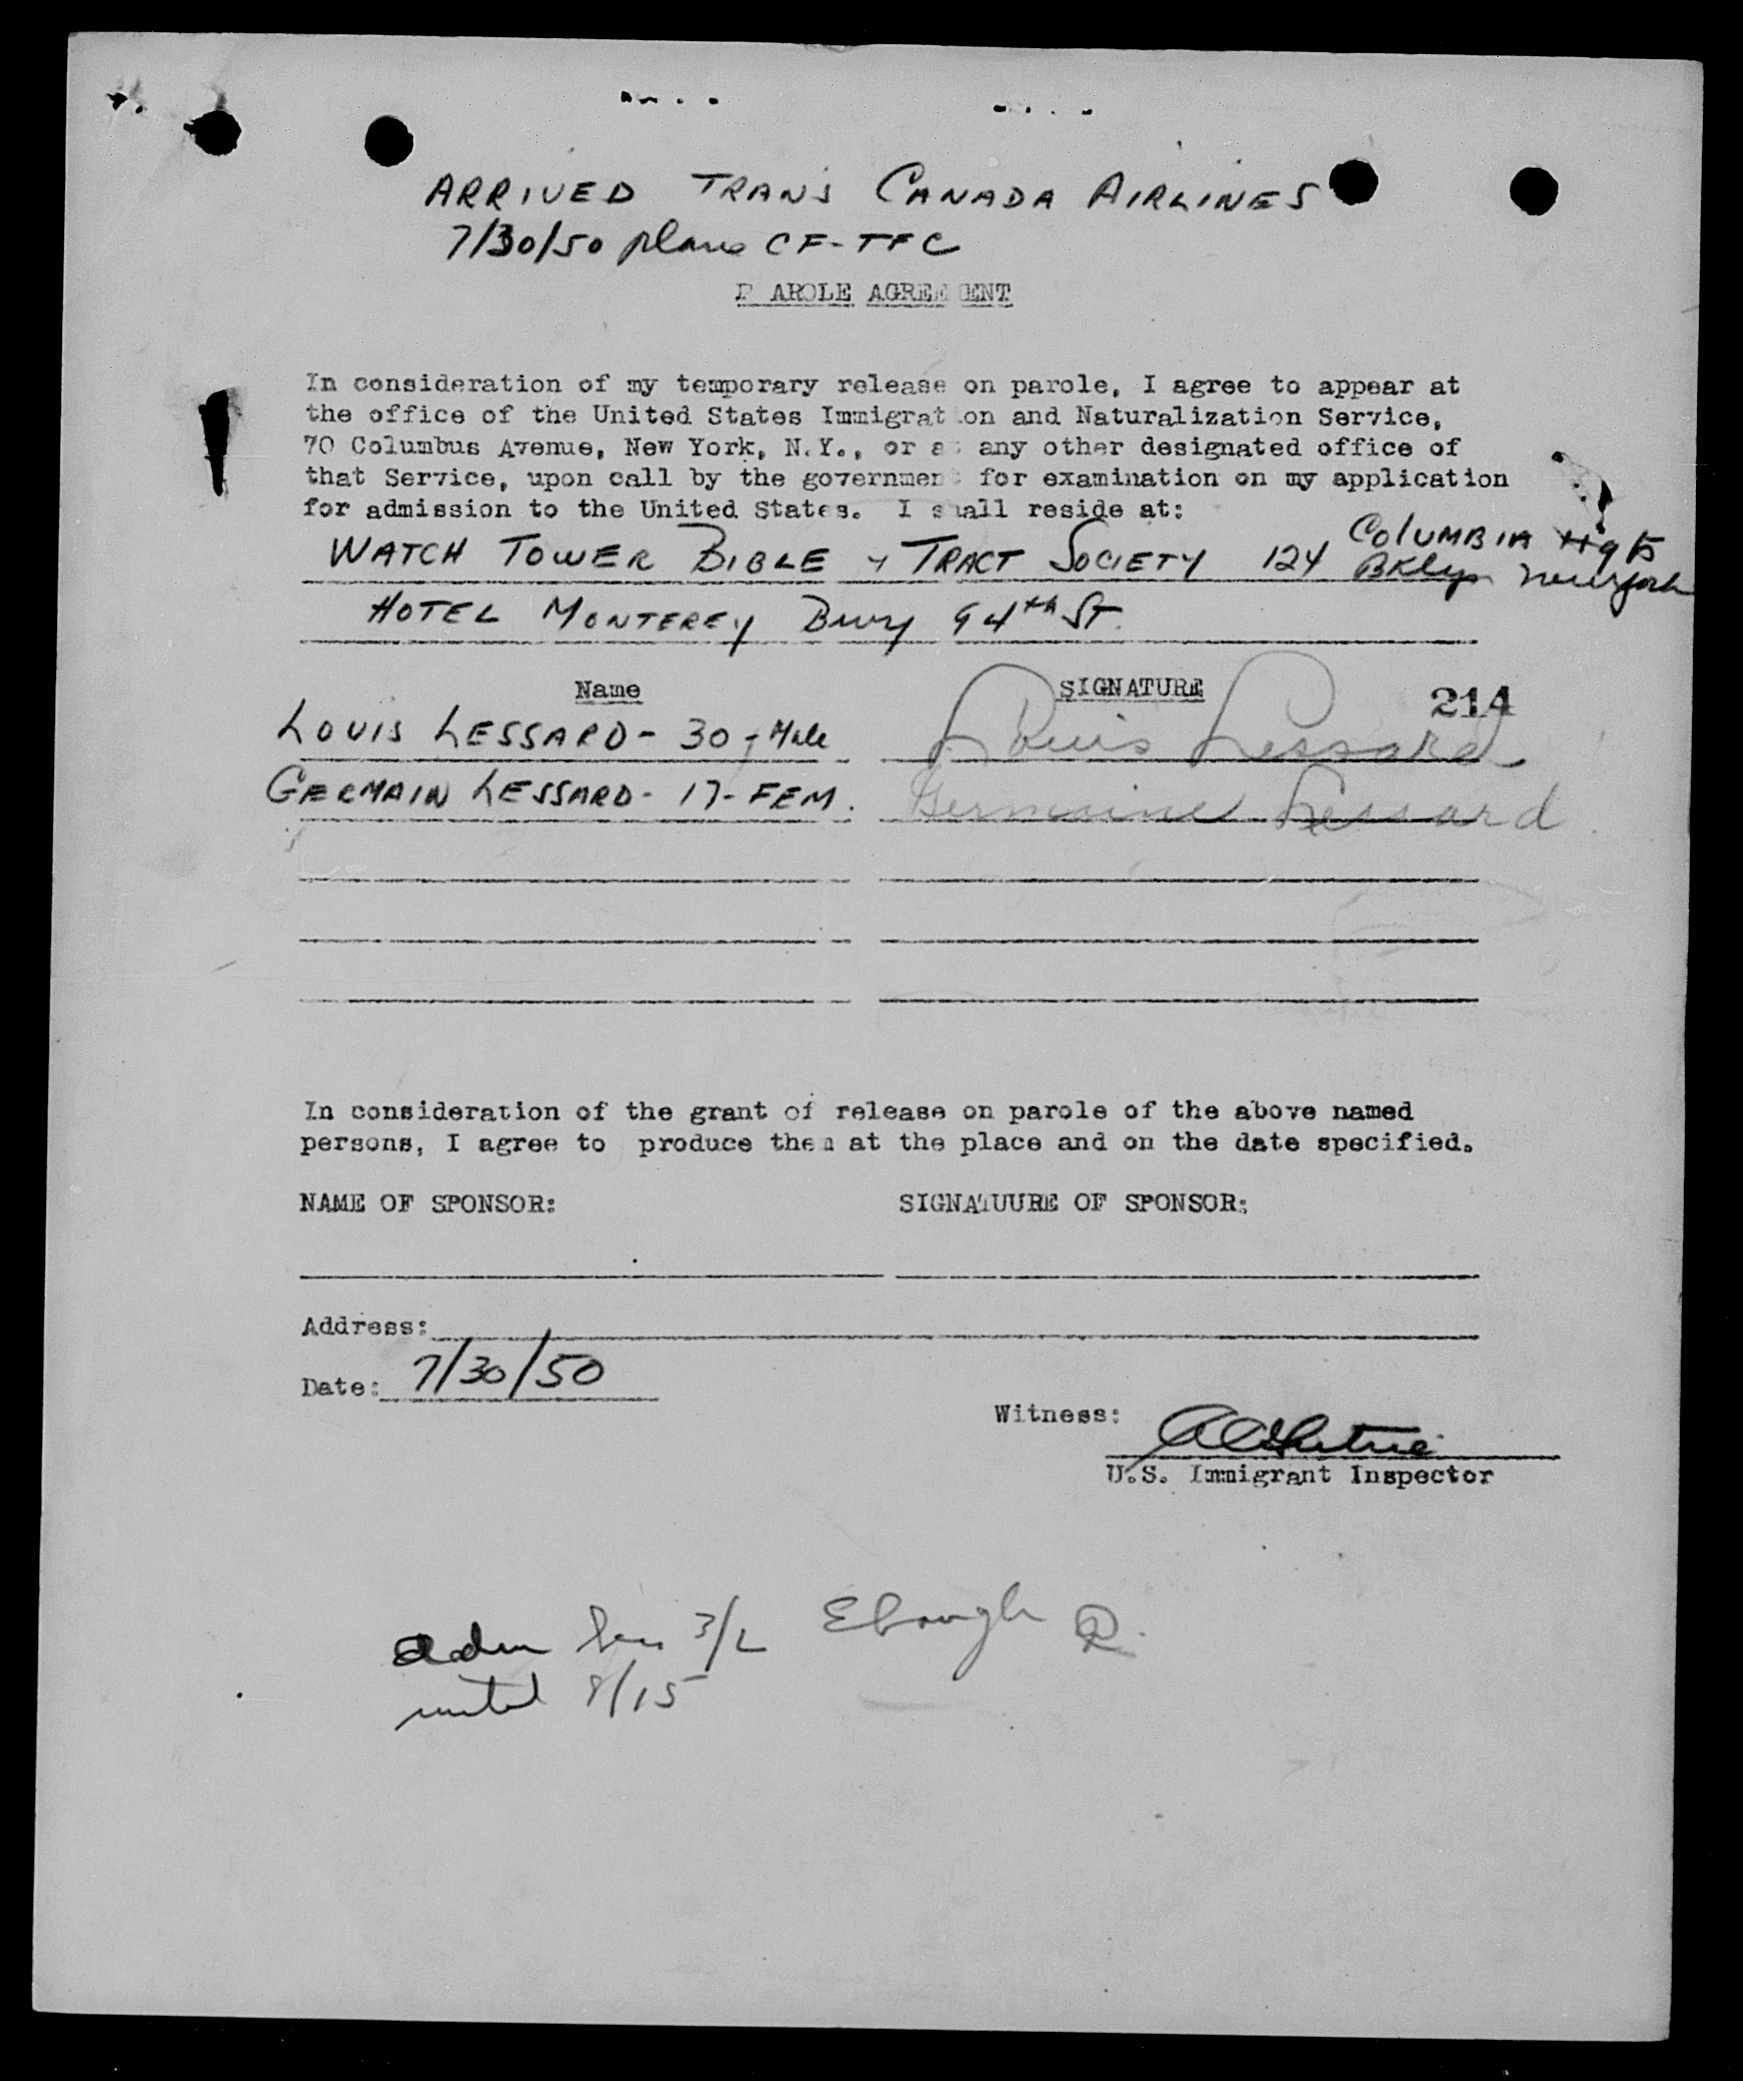 ARRIVED TRANS CANADA AIRLINES
7/30/50 plane CF-TFC
PAROLE AGREEMENT
In consideration of my temporary release on parole, I agree to appear at
the office of the United States Immigration and Naturalization Service,
70 Columbus Avenue, New York, N.Y., or at any other designated office of
that Service, upon call by the government for examination on my application
for admission to the United States. I shall reside at:
WATCH TOWER BIBLE & TRACT SOCIETY 124 COLUMBIA Hgts
BKlyn New York
HOTEL MONTEREY Bwy 94th ST.
Name SIGNATURE 214
LOUIS LESSARD - 30 - Male Louis Lessard
GERMAIN LESSARD - 17 - FEM. Germaine Lessard
In consideration of the grant of release on parole of the above named
persons, I agree to produce them at the place and on the date specified.
NAME OF SPONSOR: SIGNATUURE OF SPONSOR:
Address:
Date: 7/30/50
Witness:
U.S. Immigrant Inspector
adm 3/2
until 8/15